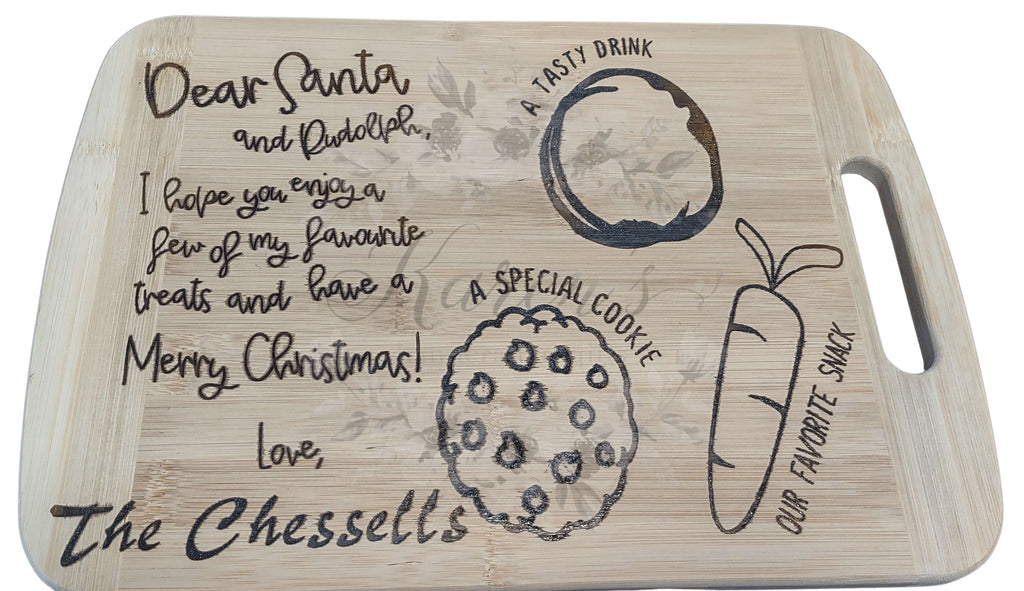 Dear Santa
and Rudolph,
I hope you enjoy a
few of my favourite
treats and have a
Merry Christmas!
Love,
The Chessells
A TASTY DRINK
A SPECIAL COOKIE
OUR FAVORITE SNACK